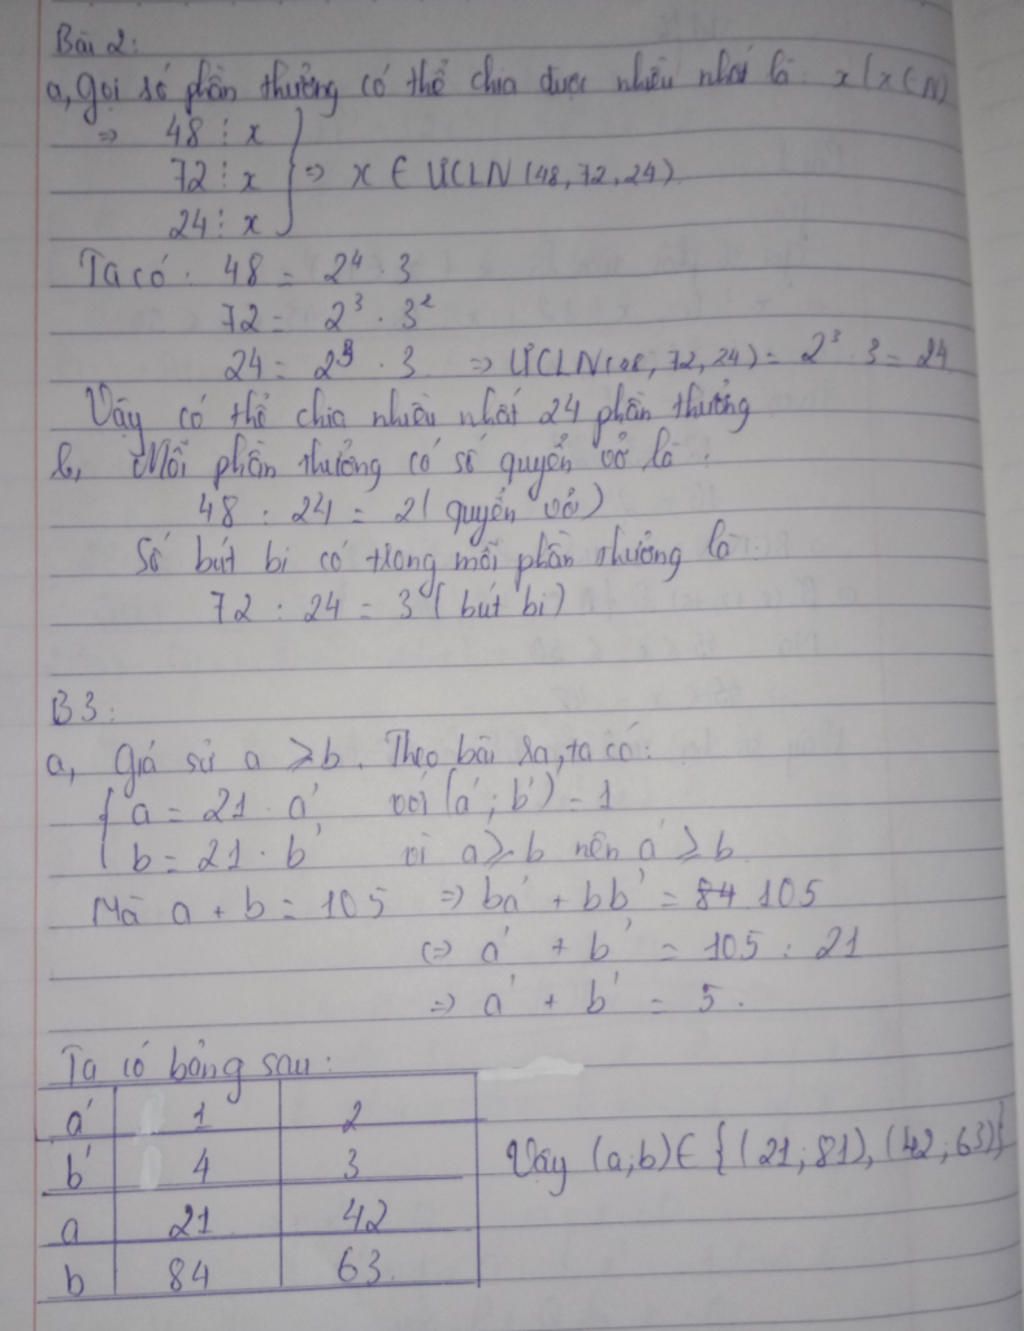 Bài 2:
a, Gọi số phần thưởng có thể chia được nhiều nhất là x (x ∈ N)
⇒ 48 ⋮ x
72 ⋮ x } ⇒ x ∈ ƯCLN (48, 72, 24)
24 ⋮ x
Ta có: 48 = 2⁴ . 3
72 = 2³ . 3²
24 = 2³ . 3 ⇒ ƯCLN (48, 72, 24) = 2³ . 3 = 24
Vậy có thể chia nhiều nhất 24 phần thưởng
b, Mỗi phần thưởng có số quyển vở là:
48 : 24 = 2 ( quyển vở )
Số bút bi có trong mỗi phần thưởng là:
72 : 24 = 3 ( bút bi )
B3:
a, Giả sử a ⩾ b. Theo bài ra, ta có:
{ a = 21 . a' với (a'; b') = 1
b = 21 . b' vì a ⩾ b nên a' ⩾ b
Mà a + b = 105 ⇒ ba' + bb' = 84 105
⇔ a' + b' = 105 : 21
⇒ a' + b' = 5.
Ta có bảng sau:
a' 1 2
b' 4 3
a 21 42
b 84 63
Vậy (a;b) ∈ { (21; 81), (42; 63)}